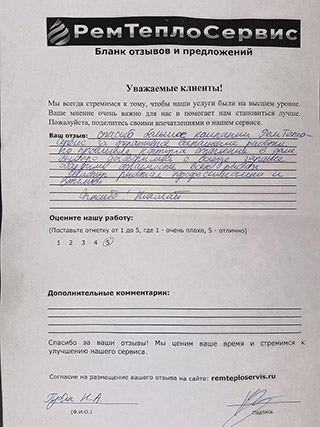 РемТеплоСервис
Бланк отзывов и предложений
Уважаемые клиенты!
Мы всегда стремимся к тому, чтобы наши услуги были на высшем уровне.
Ваше мнение очень важно для нас и помогает нам становиться лучше.
Пожалуйста, поделитесь своими впечатлениями о нашем сервисе.
Ваш отзыв: Спасибо большое компании РемТепло-
Сервис за
по промывке отопления в доме
быстро
работал профессионально и
Спасибо!
Оцените нашу работу:
(Поставьте отметку от 1 до 5, где 1 - очень плохо, 5 - отлично)
1 2 3 4 5
Дополнительные комментарии:
Спасибо за ваши отзывы! Мы ценим ваше время и стремимся к
улучшению нашего сервиса.
Согласие на размещение вашего отзыва на сайте: remteploservis.ru
Н.А
(Ф.И.О.) Подпись